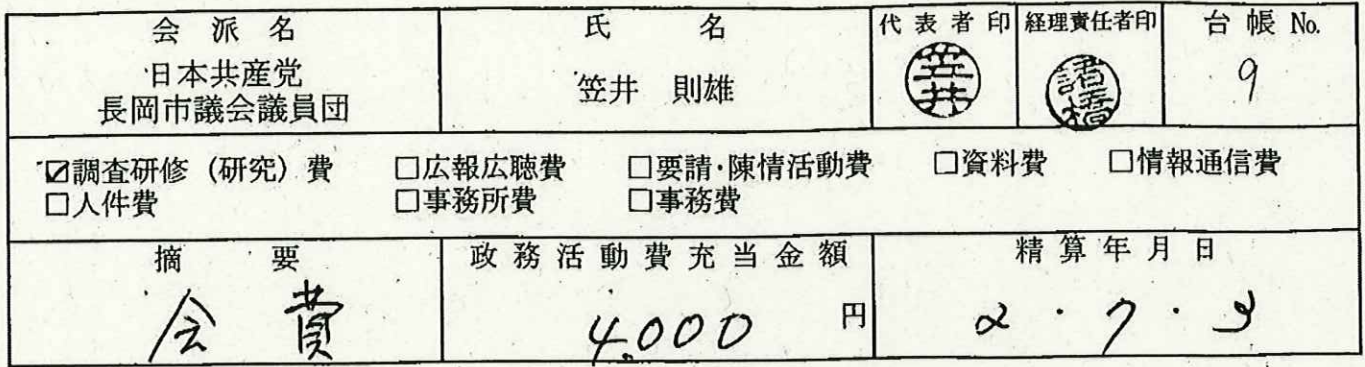 会派名 氏名 代表者印 経理責任者印 台帳No.
日本共産党
長岡市議会議員団 笠井 則雄 笠井 諸橋 9
☑調査研修（研究）費 □広報広聴費 □要請・陳情活動費 □資料費 □情報通信費
□人件費 □事務所費 □事務費
摘要 政務活動費充当金額 精算年月日
会費 4,000 円 2・7・3